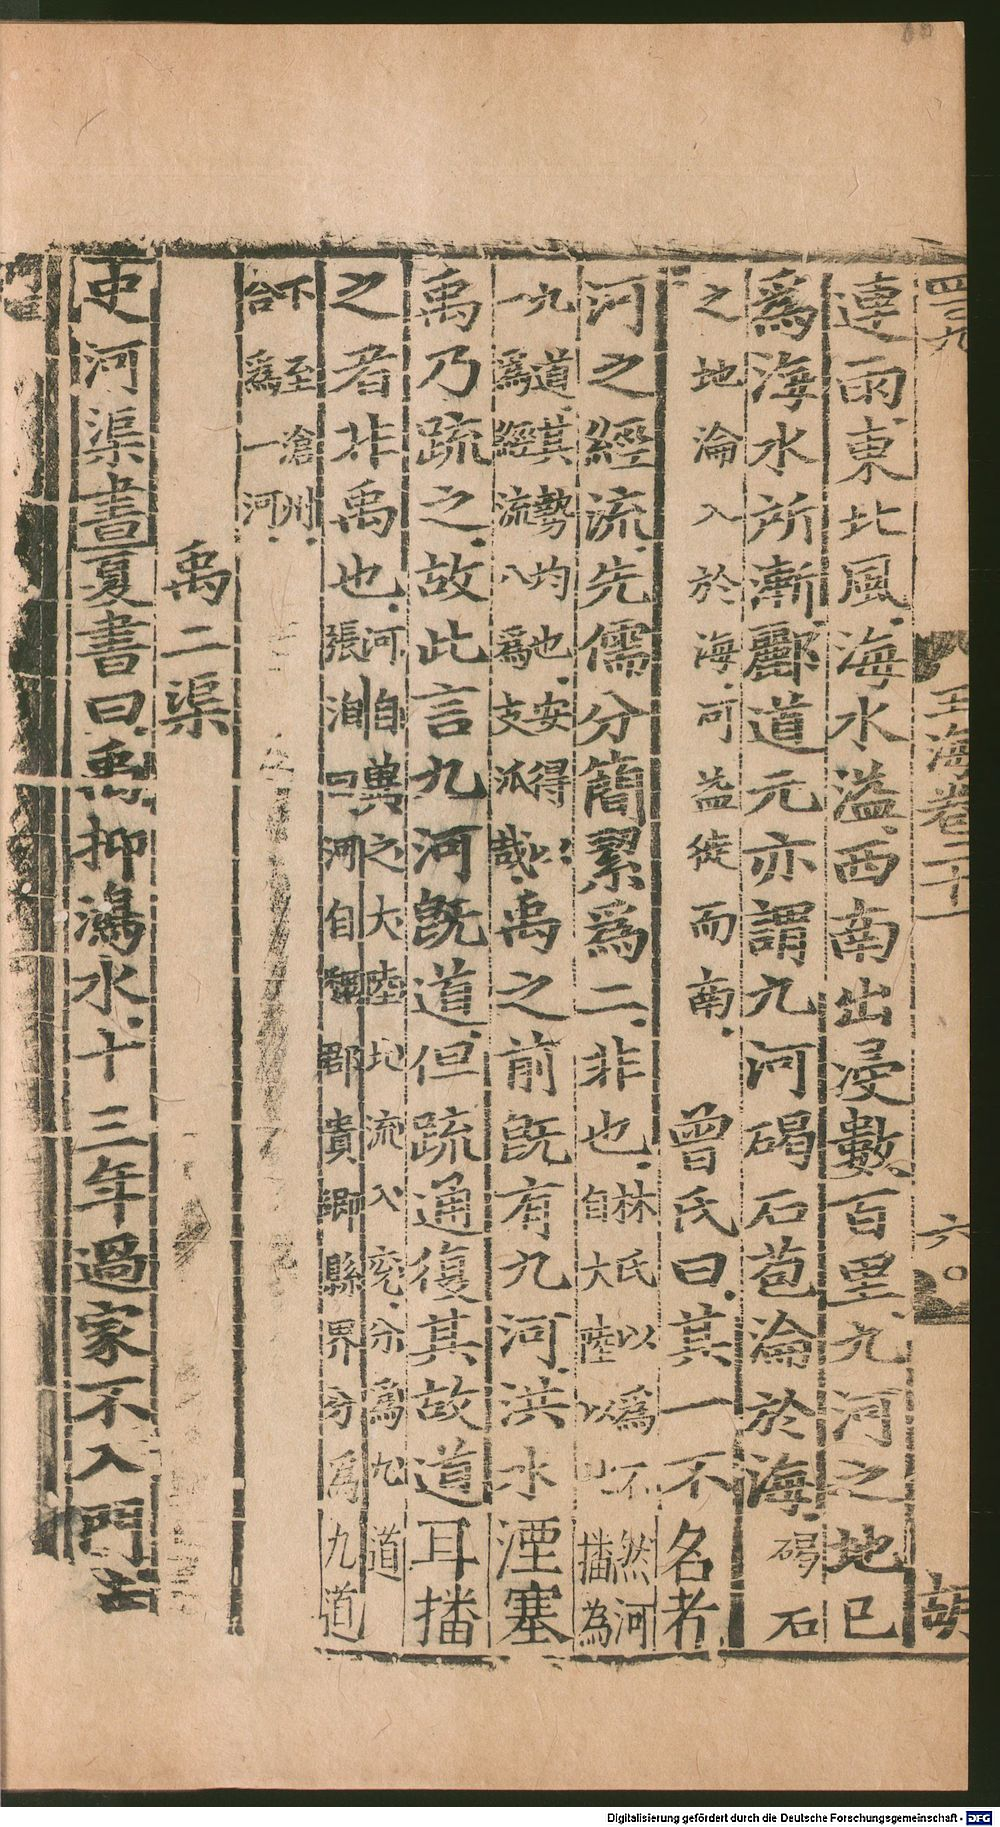 四百九 玉海卷二十一 六 胡
連雨東北風海水溢西南出浸數百里九河之地已
爲海水所漸酈道元亦謂九河碣石苞淪於海碣石
之地淪入於海河益徙而南 曾氏曰其一不名者
河之經流先儒分簡絜爲二非也林氏以爲不然河自大陸以北播為
九道其勢均也安得以一爲經流八爲支派哉禹之前旣有九河洪水湮塞
禹乃疏之故此言九河旣道但疏通復其故道耳播
之者非禹也河自冀之大陸北流入兖分爲九道張洎曰河自魏郡貴鄉縣界分為九道
下至滄州合爲一河
禹二渠
史河渠書夏書曰禹抑鴻水十三年過家不入門
Digitalisierung gefördert durch die Deutsche Forschungsgemeinschaft - DFG